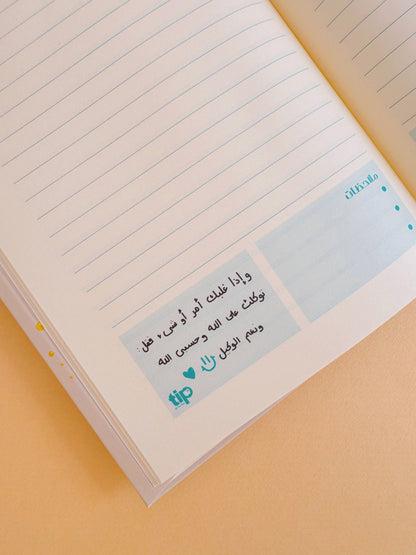 ملاحظات
وإذا غلبك أمر أو شيء فقل:
توكلت على الله وحسبي الله
ونعم الوكيل
tip